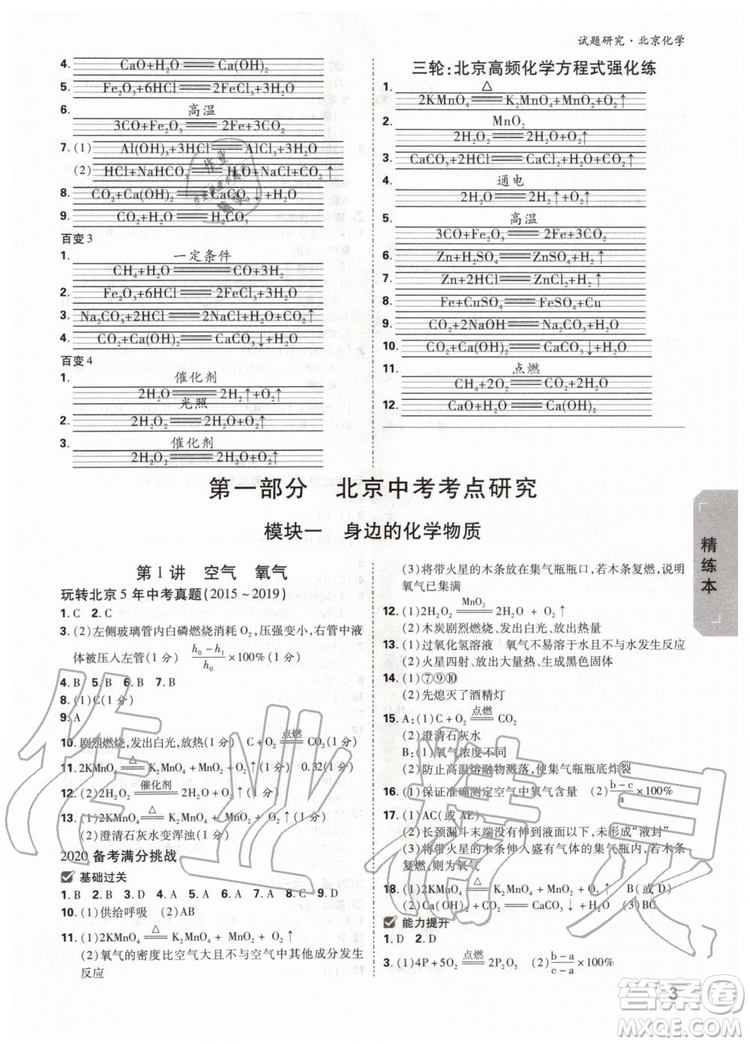 试题研究·北京化学
4. CaO+H₂O══Ca(OH)₂
5. Fe₂O₃+6HCl══2FeCl₃+3H₂O
高温
6. 3CO+Fe₂O₃══2Fe+3CO₂
7. (1) Al(OH)₃+3HCl══AlCl₃+3H₂O
(2) HCl+NaHCO₃══H₂O+NaCl+CO₂↑
8. CO₂+Ca(OH)₂══CaCO₃↓+H₂O
9. CO₂+H₂O══H₂CO₃
百变3
一定条件
1. CH₄+H₂O══CO+3H₂
2. Fe₂O₃+6HCl══2FeCl₃+3H₂O
3. Na₂CO₃+2HCl══2NaCl+H₂O+CO₂↑
4. CO₂+Ca(OH)₂══CaCO₃↓+H₂O
百变4
催化剂
1. 2H₂O══2H₂↑+O₂↑
光照
2. 2H₂O══2H₂↑+O₂↑
催化剂
3. 2H₂O══2H₂↑+O₂↑
三轮:北京高频化学方程式强化练
△
1. 2KMnO₄══K₂MnO₄+MnO₂+O₂↑
MnO₂
2. 2H₂O₂══2H₂O+O₂↑
3. CaCO₃+2HCl══CaCl₂+H₂O+CO₂↑
通电
4. 2H₂O══2H₂↑+O₂↑
高温
5. 3CO+Fe₂O₃══2Fe+3CO₂
6. Zn+H₂SO₄══ZnSO₄+H₂↑
7. Zn+2HCl══ZnCl₂+H₂↑
8. Fe+CuSO₄══FeSO₄+Cu
9. CO₂+2NaOH══Na₂CO₃+H₂O
10. CO₂+Ca(OH)₂══CaCO₃↓+H₂O
点燃
11. CH₄+2O₂══CO₂+2H₂O
12. CaO+H₂O══Ca(OH)₂
第一部分 北京中考考点研究
模块一 身边的化学物质
第1讲 空气 氧气
玩转北京5年中考真题(2015~2019)
1. C 2. C
3. (2)左侧玻璃管内白磷燃烧消耗O₂,压强变小,右管中液
体被压入左管(1分) (h₀－h₁)/h₀×100%(1分)
4. B 5. B 6. D 7. D 8. (1)C (2)B
9. A
10. 剧烈燃烧,发出白光,放热(1分) C+O₂ 点燃══ CO₂(1分)
11. 2KMnO₄ △══ K₂MnO₄+MnO₂+O₂↑(1分) 0.32(1分)
12. (1)2H₂O₂ 催化剂══ 2H₂O+O₂↑(1分)
(2)澄清石灰水变浑浊(1分)
2020备考满分挑战
基础过关
1. B 2. B 3. D 4. A 5. A 6. A 7. B 8. C 9. D
10. (1)供给呼吸 (2)AB
11. (1)2KMnO₄ △══ K₂MnO₄+MnO₂+O₂↑
(2)氧气的密度比空气大且不与空气中其他成分发生
反应
(3)将带火星的木条放在集气瓶瓶口,若木条复燃,说明
氧气已集满
12. (1)2H₂O₂ MnO₂══ 2H₂O+O₂↑
(2)木炭剧烈燃烧,发出白光,放热
13. (1)过氧化氢溶液 氧气不易溶于水且不与水反应
(2)火星四射、放出大量热、生成黑色固体
14. (1)⑦⑨⑩
(2)先熄灭了酒精灯
15. A:(1)C+O₂ 点燃══ CO₂
(2)澄清石灰水
B:(1)氧气浓度不同
(2)防止高温熔融物溅落,使集气瓶瓶底炸裂
16. (1)保证准确测定空气中氧气含量 (2)(b－c)/(a－c)×100%
17. (1)AC(或AE)
(2)长颈漏斗末端没有伸入液面以下,未形成“液封”
(3)将带火星的木条伸入盛有某无色气体的集气瓶中,
若木条复燃,则为氧气
18. (1)2KMnO₄ △══ K₂MnO₄+MnO₂+O₂↑
(2)Ca(OH)₂+CO₂══CaCO₃↓+H₂O
能力提升
1. D 2. D
3. (1)4P+5O₂ 点燃══ 2P₂O₅ (2)(b－c)/(a－c)×100%
精练本
3
作业精灵
答案圈
MXQE.COM